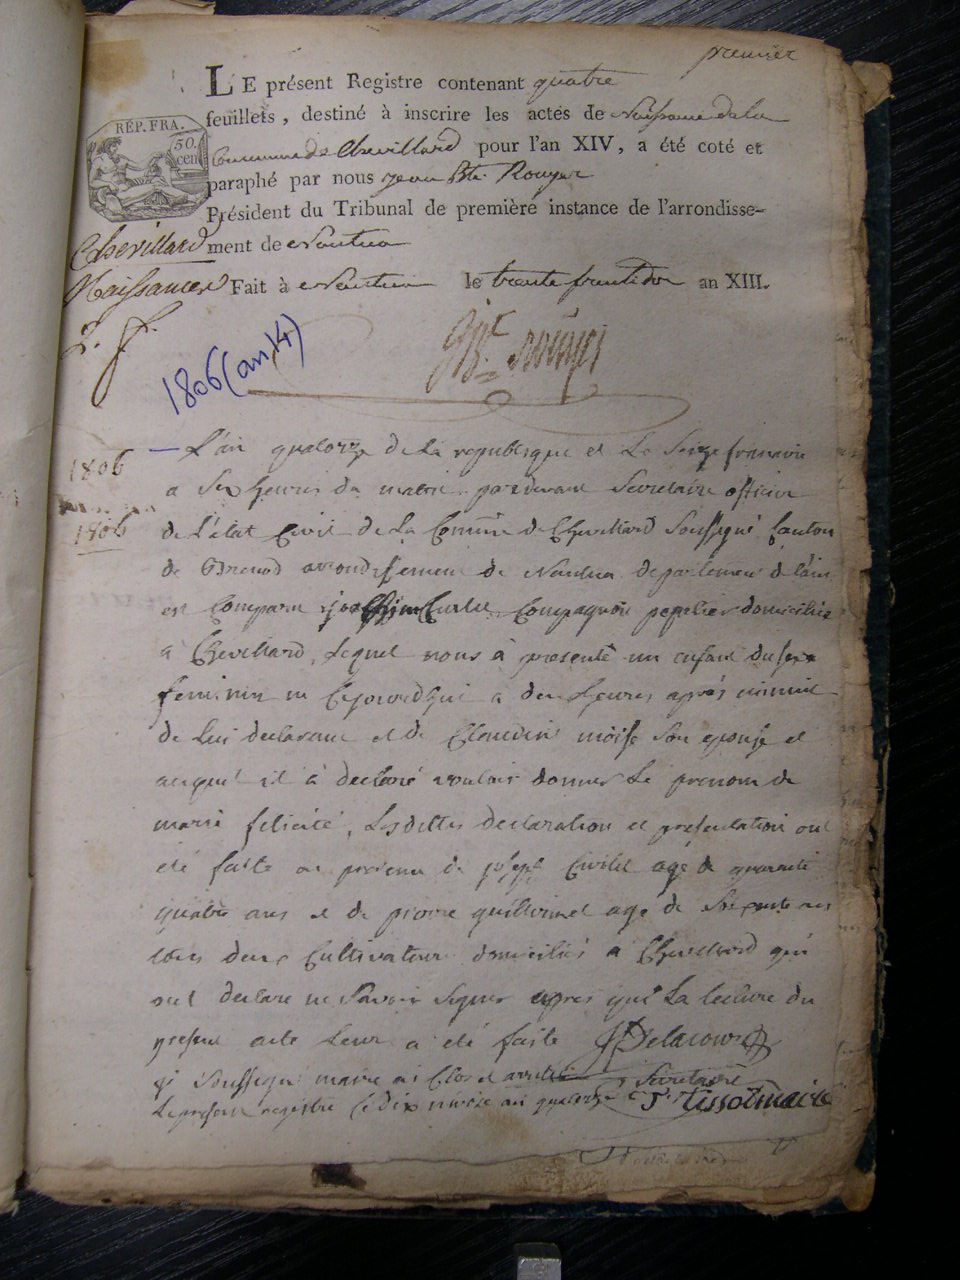 premier
LE présent Registre contenant quatre
feuillets, destiné à inscrire les actes de Naissance de la
Commune de Chevillard pour l'an XIV, a été coté et
paraphé par nous jean Bte. Rouyer
Président du Tribunal de première instance de l'arrondisse-
ment de Nantua
Fait à Nantua le trente fructidor an XIII.
RÉP. FRA.
50. cen
Chevillard
Naissances
1806 (an 14)
1806
1806
L'an quatorze de la republique et le seize frimaire
a six heures du matin pardevant Secretaire officier
de l'état Civil de la Comune de Chevillard Soussigné Canton
de Brenod arrondissement de Nantua departement de l'ain
est Comparu Compagnon domicilié
à Chevillard, lequel nous à presenté un enfant du sexe
feminin né Cejourdhui a deux heures après minuit
de lui declarant et de Claudine moise son epouse et
auquel il à declaré vouloir donner Le prenom de
marie felicité, Lesdittes declaration et presentation ont
été faite en presence de joseph agé de quarante
quatre ans et de pierre guillermet agé de ans
tous deux Cultivateurs domiciliés à Chevillard qui
ont declaré ne Savoir Signer apres que La lecture du
present acte Leur a été faite Delacour
Secretaire
Le present registre Ce dix nivose an quatorze J. tissot maire